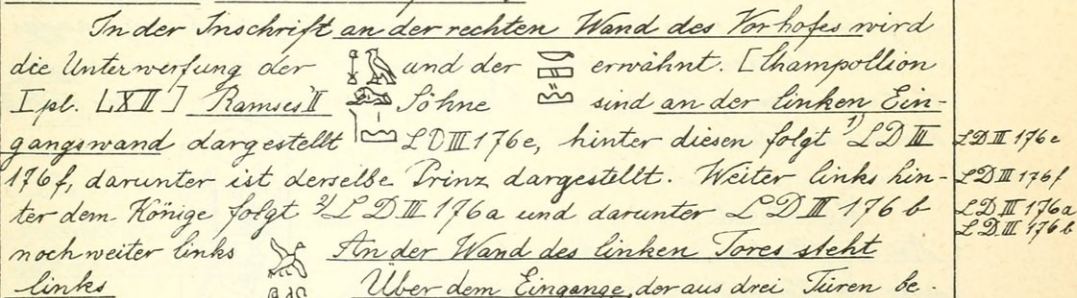 In der Inschrift an der rechten Wand des Vorhofes wird
die Unterwerfung der und der erwähnt. [Champollion
I pl. LXII] Ramses II Söhne sind an der linken Ein-
gangswand dargestellt LD III 176e, hinter diesen folgt ¹⁾ LD III LD III 176e
176f, darunter ist derselbe Prinz dargestellt. Weiter links hin- LD III 176f
ter dem Könige folgt ²⁾ LD III 176a und darunter LD III 176b LD III 176a
LD III 176b
noch weiter links An der Wand des linken Tores steht
links Über dem Eingange, der aus drei Türen be-